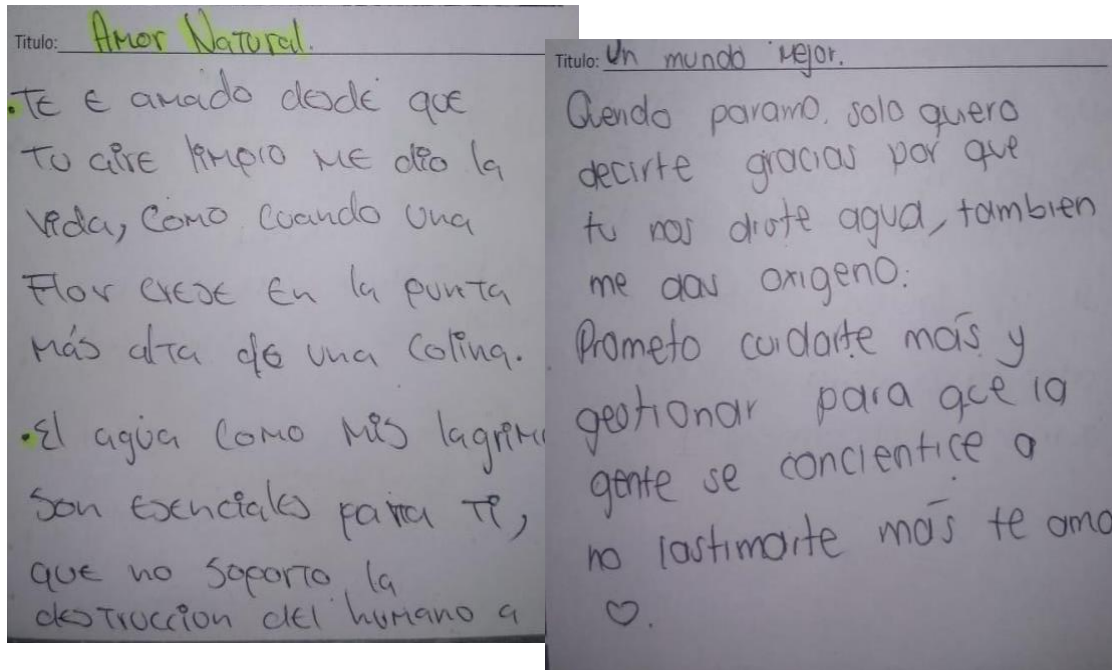 Titulo: Amor Natural.
• TE E amado desde que
Tu aire limpio ME dio la
vida, Como cuando una
Flor crese En la punta
Más alta de una Colina.
• El agua como Mis lagrim
Son esenciales para Ti,
que no soporto la
destruccion del humano a
Titulo: Un mundo mejor.
Querido paramo, solo quiero
decirte gracias por que
tu nos diste agua, tambien
me das oxigeno.
Prometo cuidarte más y
gestionar para que la
gente se concientice a
no lastimarte más te amo
♡.